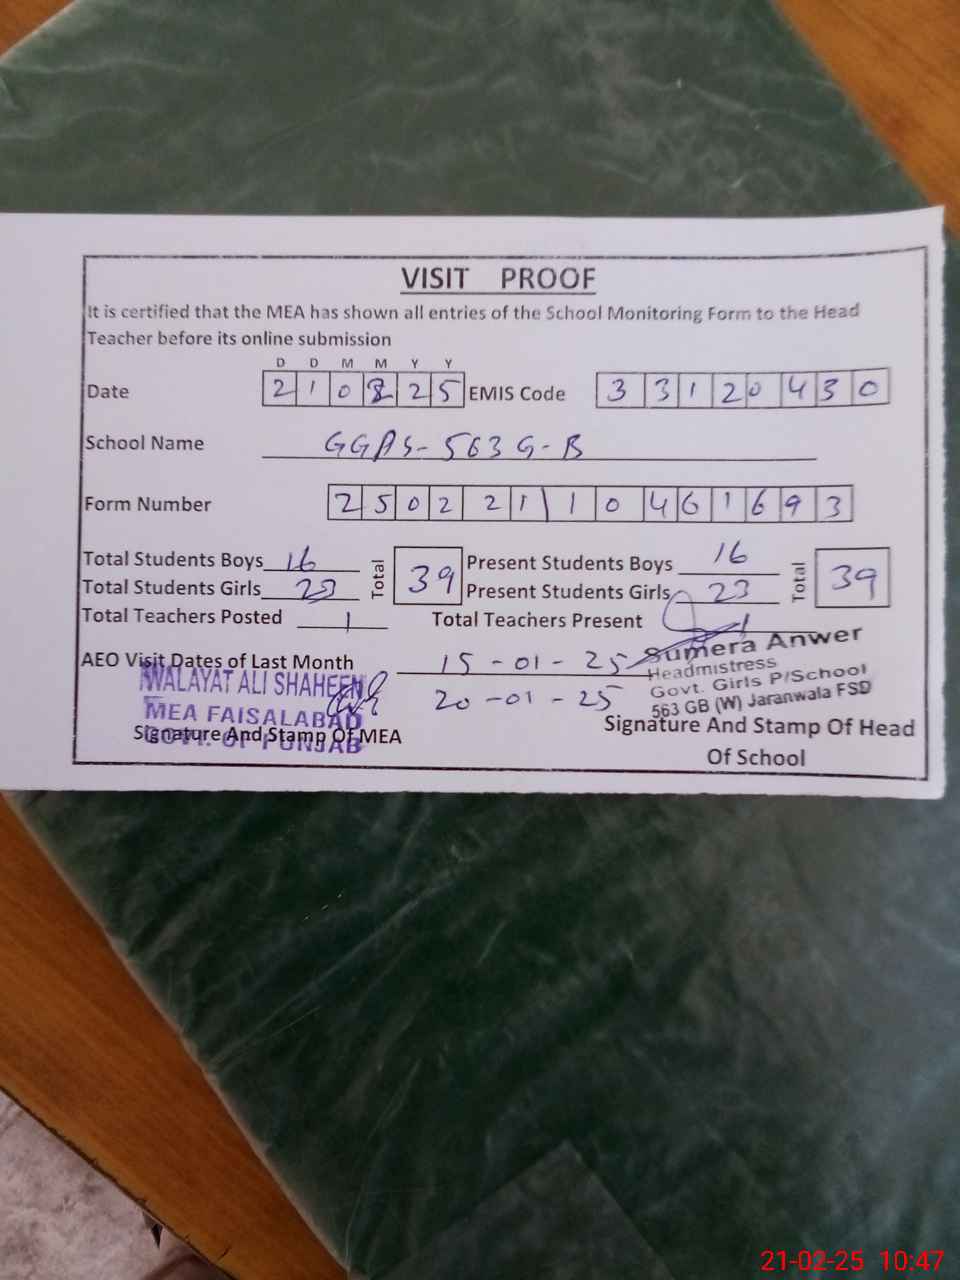 VISIT PROOF
It is certified that the MEA has shown all entries of the School Monitoring Form to the Head
Teacher before its online submission
D D M M Y Y
Date 2 1 0 2 2 5 EMIS Code 3 3 1 2 0 4 3 0
School Name GGPS-563 G-B
Form Number 2 5 0 2 2 1 1 0 4 6 1 6 9 3
Total Students Boys 16 Total 39 Present Students Boys 16 Total 39
Total Students Girls 23 Present Students Girls 23
Total Teachers Posted 1 Total Teachers Present 1
AEO Visit Dates of Last Month 15-01-25
20-01-25
WALAYAT ALI SHAHEEN
MEA FAISALABAD
GOVT. OF PUNJAB
Signature And Stamp Of MEA
Sumera Anwer
Headmistress
Govt. Girls P/School
563 GB (W) Jaranwala FSD
Signature And Stamp Of Head
Of School
21-02-25 10:47